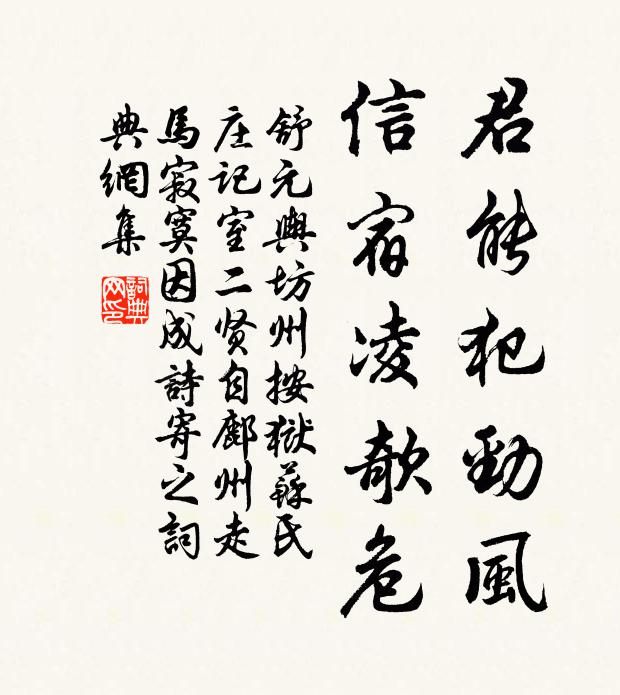 君能犯勁風
信宿凌欹危
舒元輿坊州按獄蘇氏
庄記室二贤自鄜州走
馬寂寞因成詩寄之詞
典網集
詞典
网印